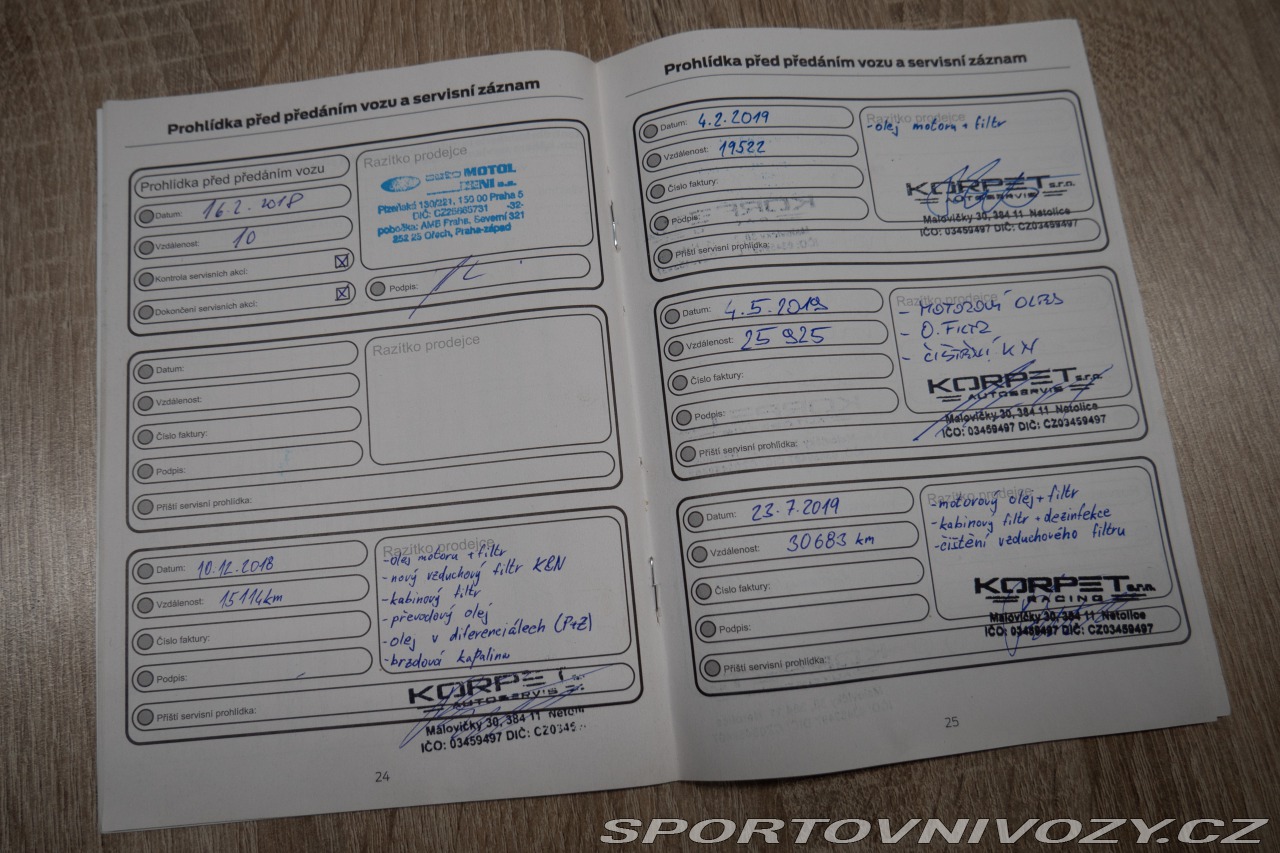 Prohlídka před předáním vozu a servisní záznam
Prohlídka před předáním vozu
Datum: 16.2.2018
Vzdálenost: 10
Kontrola servisních akcí:
Dokončení servisních akcí:
Razítko prodejce
auto MOTOL
BENI a.s.
Plzeňská 130/221, 150 00 Praha 5
DIČ: CZ25685731 -32-
pobočka: AMB Praha, Severní 321
252 25 Ořech, Praha-západ
Podpis:
Datum:
Vzdálenost:
Číslo faktury:
Podpis:
Příští servisní prohlídka:
Razítko prodejce
Datum: 10.12.2018
Vzdálenost: 15114km
Číslo faktury:
Podpis:
Příští servisní prohlídka:
Razítko prodejce
-olej motoru + filtr
-nový vzduchový filtr K&N
-kabinový filtr
-převodový olej
-olej v diferenciálech (P+Z)
-brzdová kapalina
KORPET
AUTOSERVIS
Malovičky 30, 384 11 Netolic
IČO: 03459497 DIČ: CZ0345
24
Prohlídka před předáním vozu a servisní záznam
Datum: 4.2.2019
Vzdálenost: 19522
Číslo faktury:
Podpis:
Příští servisní prohlídka:
Razítko prodejce
-olej motoru + filtr
KORPET s.r.o.
AUTOSERVIS
Malovičky 30, 384 11 Netolice
IČO: 03459497 DIČ: CZ03459497
Datum: 4.5.2019
Vzdálenost: 25 925
Číslo faktury:
Podpis:
Příští servisní prohlídka:
Razítko prodejce
- MOTOROVÝ OLEJ
- O.FILTR
- ČIŠTĚNÍ KN
KORPET s.r.o.
AUTOSERVIS
Malovičky 30, 384 11 Netolice
IČO: 03459497 DIČ: CZ03459497
Datum: 23.7.2019
Vzdálenost: 30683 km
Číslo faktury:
Podpis:
Příští servisní prohlídka:
Razítko prodejce
-motorový olej + filtr
-kabinový filtr + dezinfekce
-čištění vzduchového filtru
KORPET s.r.o.
RACING
Malovičky 30, 384 11 Netolice
IČO: 03459497 DIČ: CZ03459497
25
SPORTOVNIVOZY.CZ